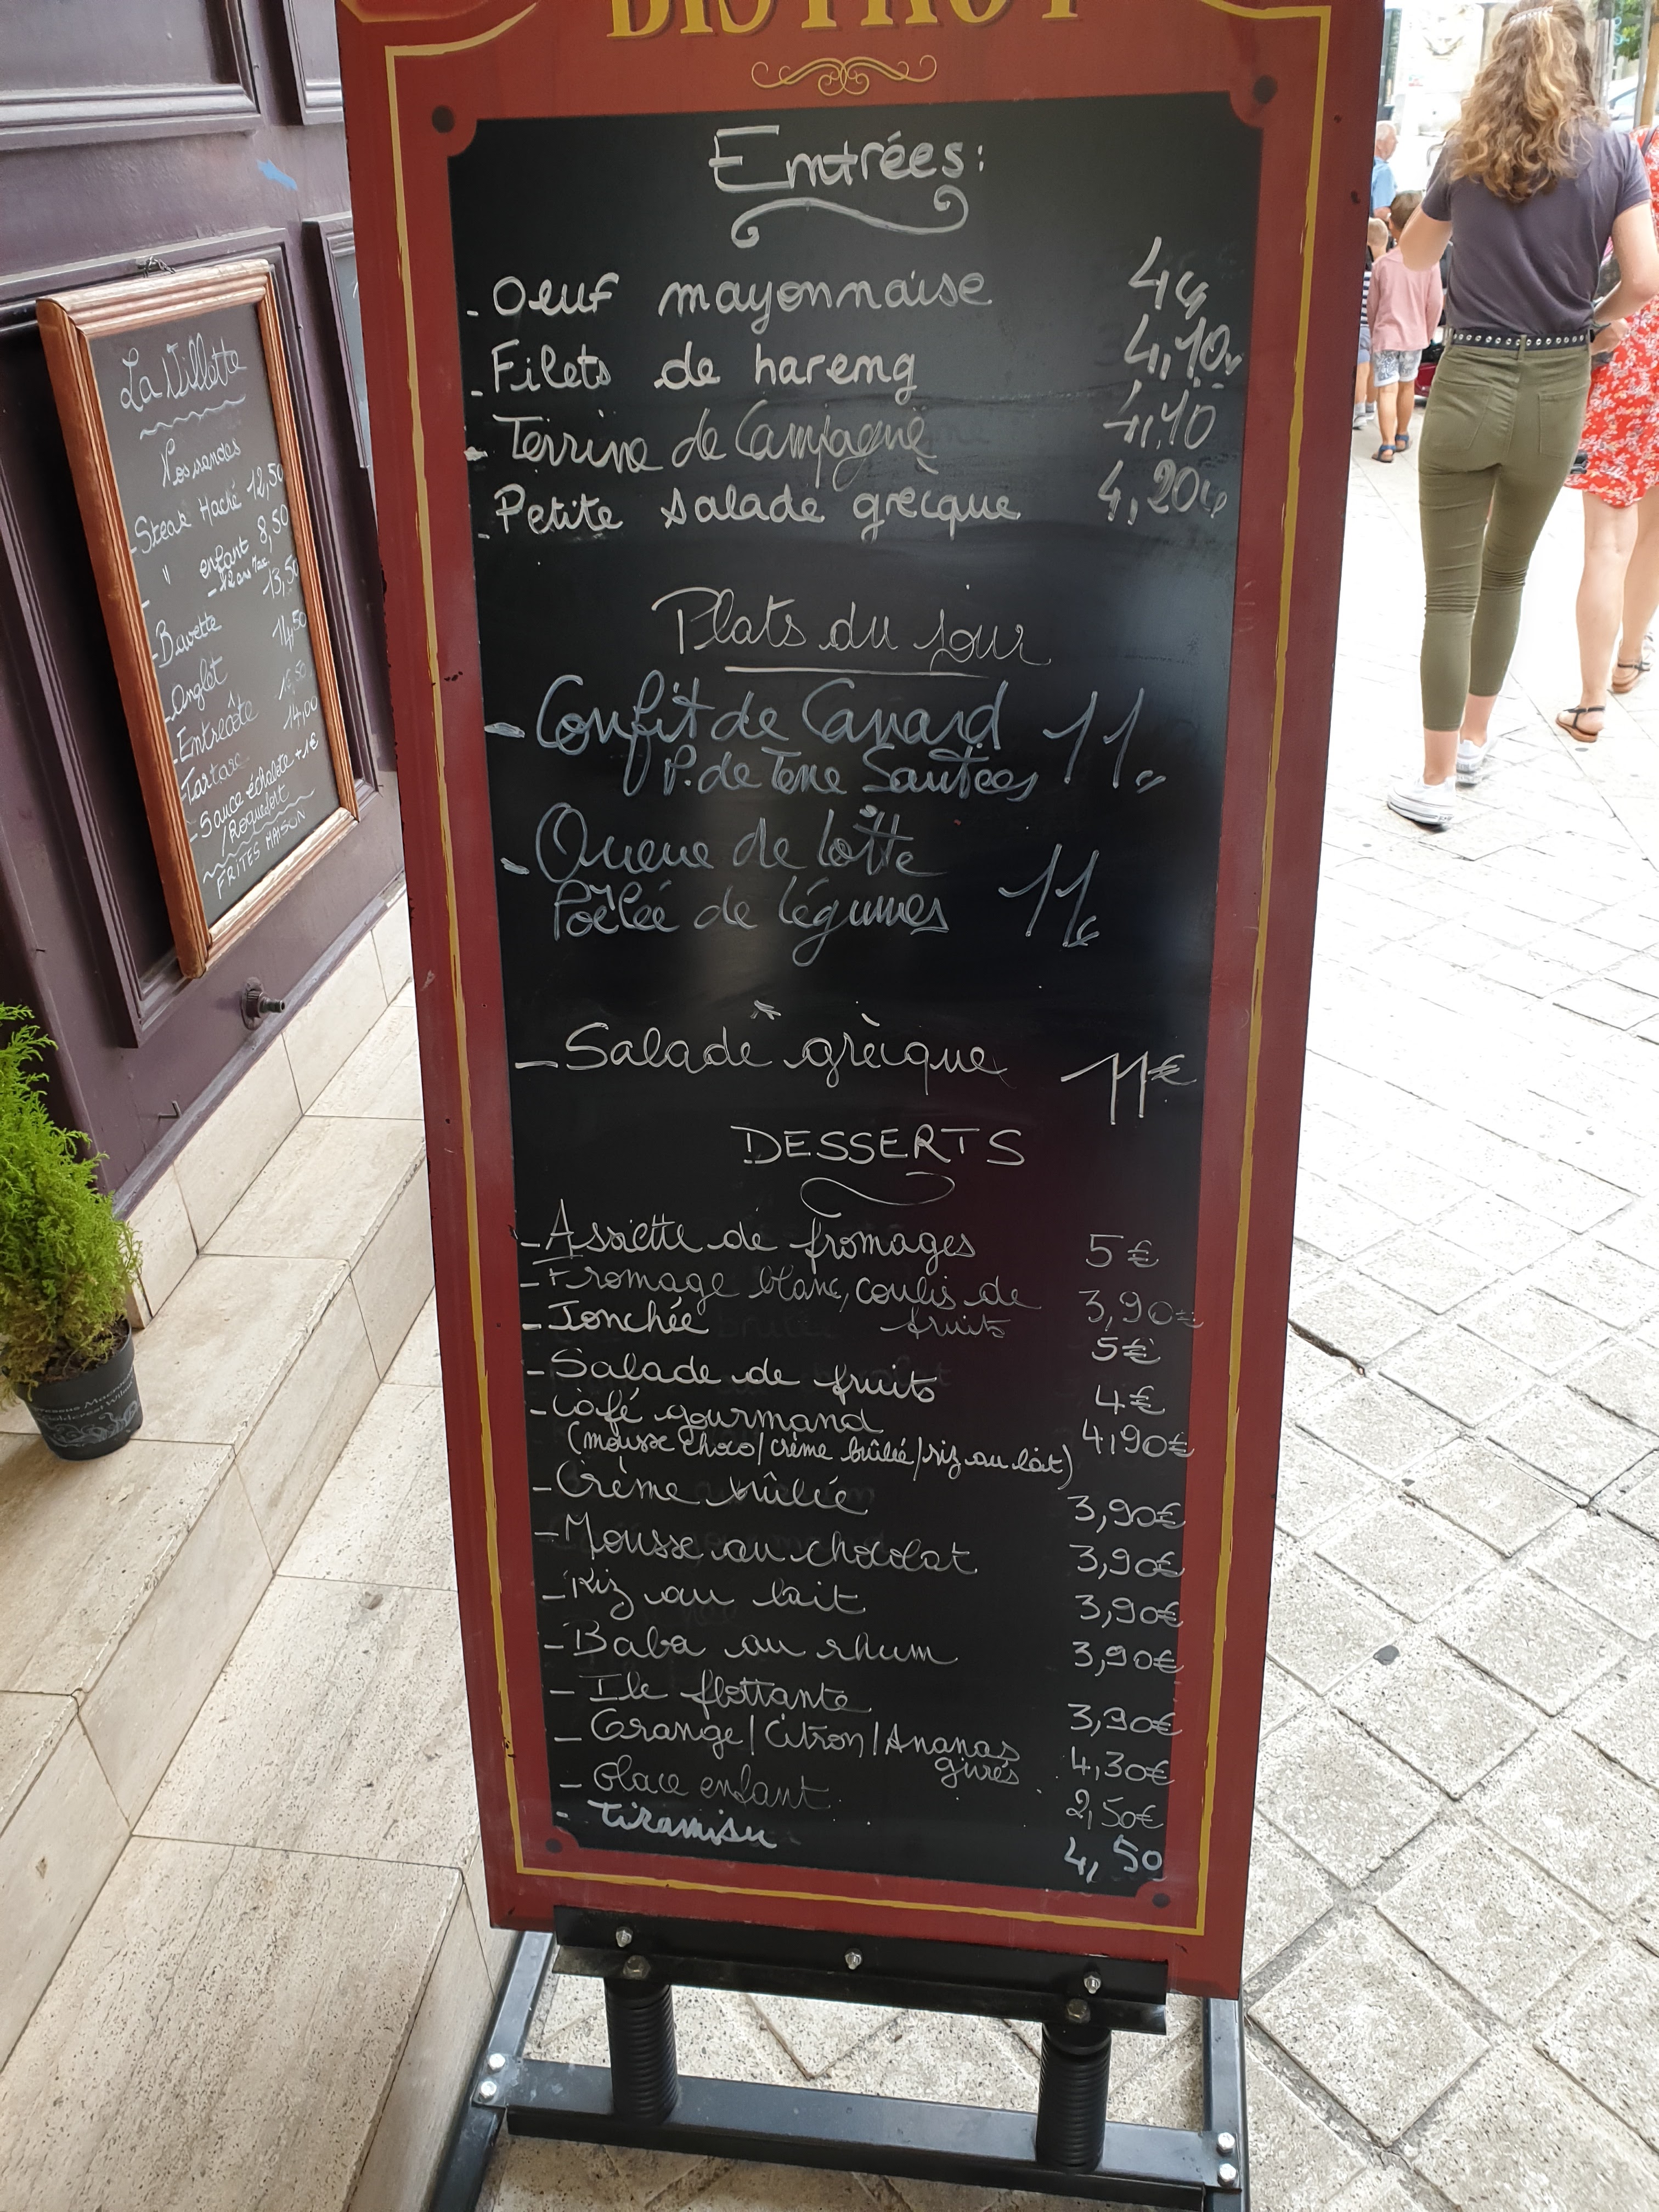 BISTROT
Entrées:
- Oeuf mayonnaise 4€
- Filets de hareng 4,10€
- Terrine de Campagne 4,10
- Petite salade grècque 4,20€
Plats du jour
- Confit de Canard 11€
P. de Terre Sautées
- Queue de lotte
Poêlée de légumes 11€
- Salade grècque 11€
DESSERTS
- Assiette de fromages 5€
- Fromage blanc, coulis de 3,90€
fruits
- Jonchée 5€
- Salade de fruits 4€
- Café gourmand 4,90€
(mousse choco/crème brûlée/riz au lait)
- Crème brûlée 3,90€
- Mousse au chocolat 3,90€
- Riz au lait 3,90€
- Baba au rhum 3,90€
- Ile flottante 3,90€
- Orange/Citron/Ananas 4,30€
givrés
- Glace enfant 2,50€
- Tiramisu 4,50
La Villette
Nos viandes
- Steak Haché 12,50
" enfant 8,50
- 12 ans
- Bavette 13,50
- Onglet 14,50
- Entrecôte
- Tartare 14,00
- Sauce échalote +1€
/Roquefort
FRITES MAISON